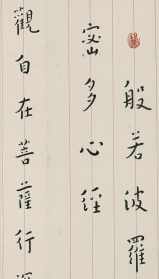 般若波羅
密多心經
觀自在菩薩行